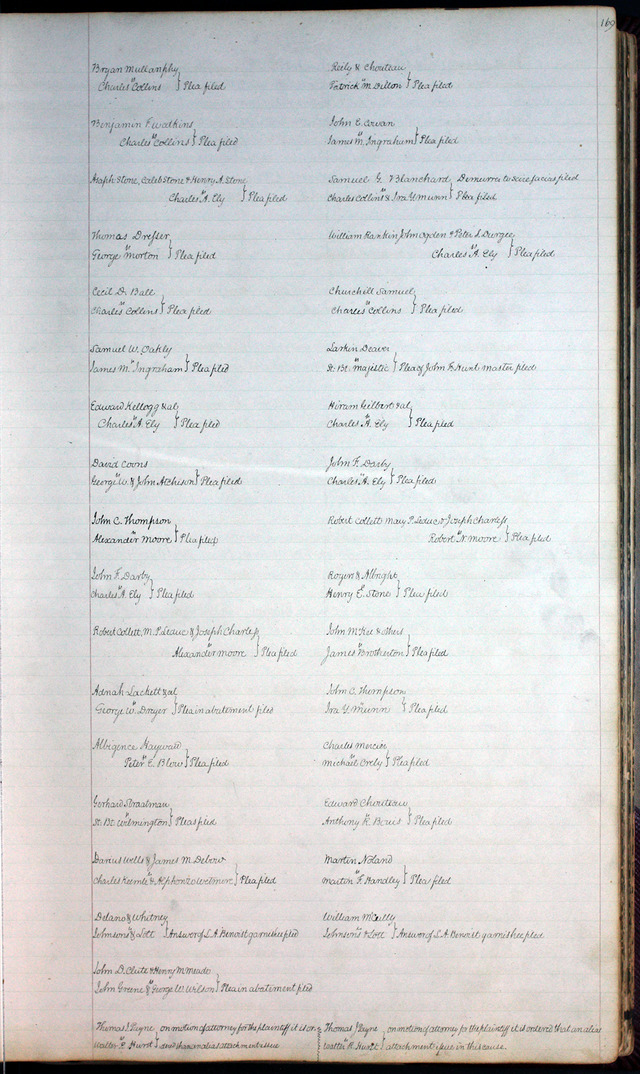 169
Bryan Mullanphy
vs
Charles Collins } Plea filed
Reily & Chouteau
vs
Patrick M. Dillon } Plea filed
Benjamin F Watkins
vs
Charles Collins } Plea filed
John E. Cowan
vs
James M. Ingraham } Plea filed
Asaph Stone, Caleb Stone & Henry A. Stone
vs
Charles A. Ely } Plea filed
Samuel G. Blanchard Demurrer to scire facias filed
vs
Charles Collins & Ira Y Munn } Plea filed
Thomas Dresser
vs
George Morton } Plea filed
William Rankin John Ogden & Peter S. Durgee
vs
Charles A. Ely } Plea filed
Cecil D. Ball
vs
Charles Collins } Plea filed
Churchill Samuel
vs
Charles Collins } Plea filed
Samuel W. Oakly
vs
James M. Ingraham } Plea filed
Larkin Deaver
vs
St. Bt. Majestic } Plea of John F. Hunt master filed
Edward Kellogg & al
vs
Charles A. Ely } Plea filed
Hiram Gilbert & al
vs
Charles A. Ely } Plea filed
David Coons
vs
George W. & John Atchison } Plea filed
John F. Darby
vs
Charles A. Ely } Plea filed
John C. Thompson
vs
Alexander Moore } Plea filed
Robert Collett Mary P. Leduc & Joseph Charless
vs
Robert N. Moore } Plea filed
John F. Darby
vs
Charles A. Ely } Plea filed
Rogers & Albright
vs
Henry E. Stone } Plea filed
Robert Collett, M. P. Leduc & Joseph Charless
vs
Alexander Moore } Plea filed
John McKee & others
vs
James Brotherton } Plea filed
Adnah Sackett & al
vs
George W. Dreyer } Plea in abatement filed
John C. Thompson
vs
Ira Y. Munn } Plea filed
Albigence Hayward
vs
Peter E. Blow } Plea filed
Charles Mercier
vs
Michael Orely } Plea filed
Gerhard Straatman
vs
St. Bt. Wilmington } Pleas filed
Edward Chouteau
vs
Anthony R. Bouis } Plea filed
Darius Wells & James M. Debow
vs
Charles Keemle & Alphonzo Wetmore } Plea filed
Martin Noland
vs
Martin F. Handley } Plea filed
Delano & Whitney
vs
Johnson & Lott } Answer of L. A. Benoist garnishee filed
William McCully
vs
Johnson & Lott } Answer of L. A. Benoist garnishee filed
John D. Clute & Henry M. Meade
vs
John Greene & George W. Wilson } Plea in abatement filed
Thomas J. Payne } on motion of attorney for the plaintiff it is or-
vs
Walter R. Hurst } dered that an alias attachment issue
Thomas J Payne } on motion of attorney for the plaintiff it is ordered that an alias
vs
Walter R. Hurst } attachment issue in this cause.